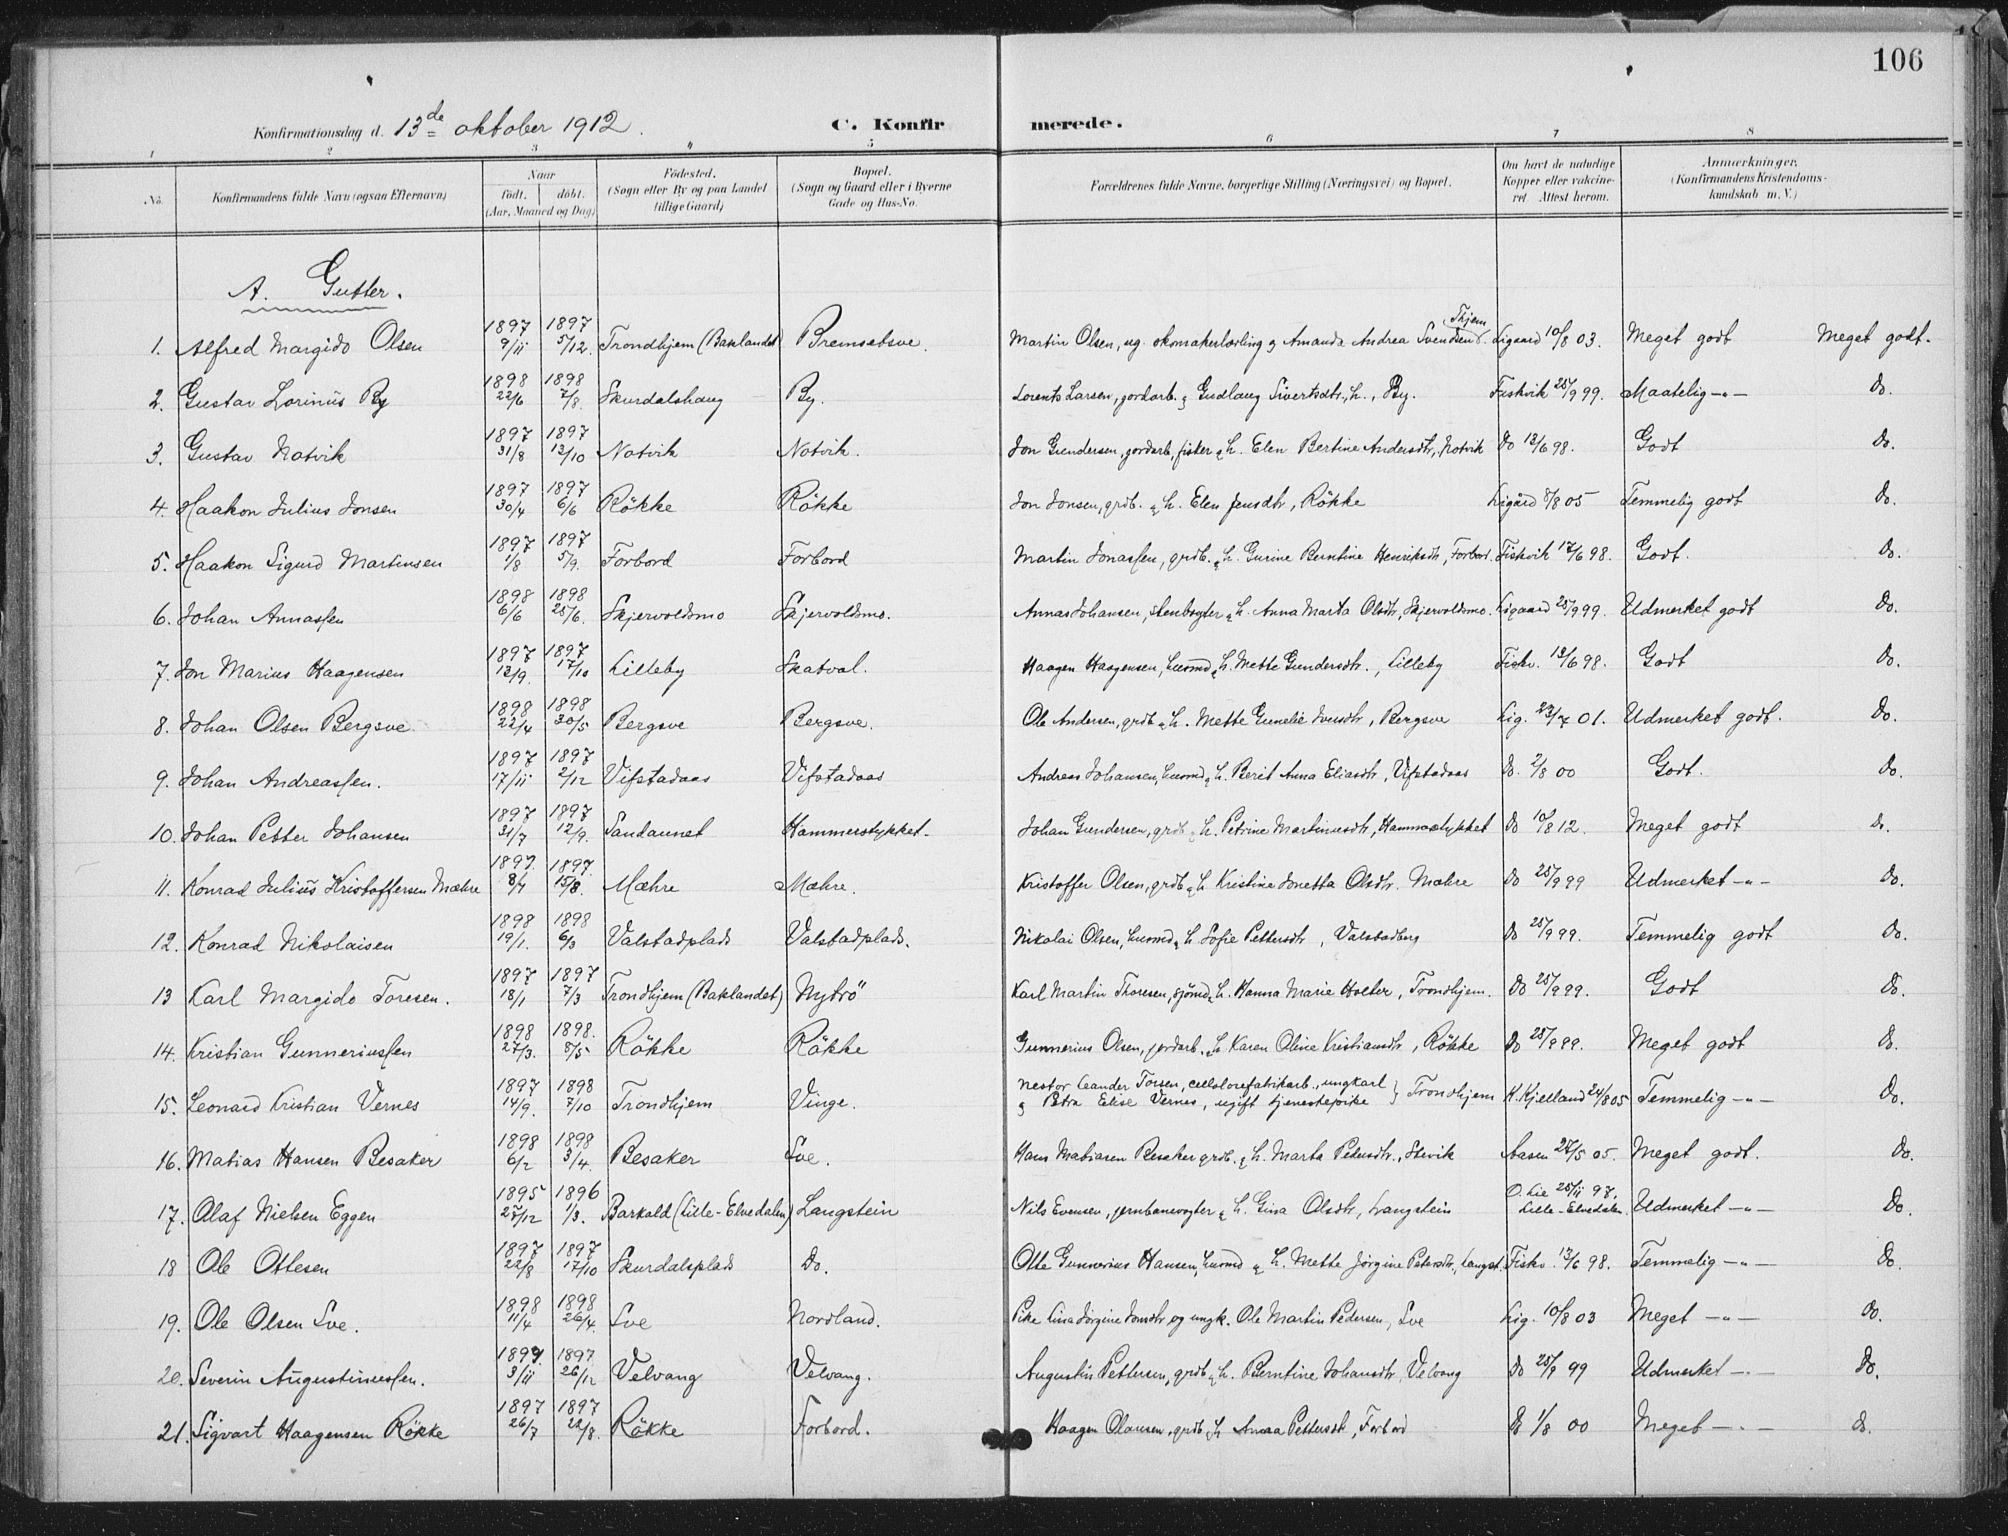 106
Konfirmationsdag d. 13de oktober 1912.
C. Konfirmerede.
1 2 3 4 5 6 7 8
No.
Konfirmandens fulde Navn (ogsaa Efternavn)
Naar
født. døbt.
(Aar, Maaned og Dag)
Födested.
(Sogn eller By og paa Landet
tillige Gaard)
Bopæl.
(Sogn og Gaard eller i Byerne
Gade og Hus-No.
Forældrenes fulde Navne, borgerlige Stilling (Næringsvei) og Bopæl.
Om havt de naturlige
Kopper eller vakcine-
ret Attest herom.
Anmærkninger.
(Konfirmandens Kristendoms-
kundskab m. V.)
A. Gutter.
1. Alfred Margido Olsen 1897 9/11 1897 5/12. Trondhjem (Baklandet) Bremsetsve. Martin Olsen, ug. skomakerlærling og Amanda Andrea Svendsen Thjem. Ligaard 10/8 03. Meget godt Meget godt.
2. Gustav Lorinius By 1898 22/6 1898 7/8. Skurdalshaug By. Lorents Larsen, jordarb. & Gudlaug Sivertsdtr, h., By. Fiskvik 25/9 99. Maatelig -"- Do.
3. Gustav Notvik 1897 31/8 1897 13/10 Notvik Notvik. Jon Gundersen, jordarb, fisker & h. Elen Bertine Andersdtr, Notvik Do 13/6 98. Godt Do.
4. Haakon Julius Jonsen 1897 30/4 1897 6/6 Rökke Rökke Jon Jonsen, grdb. & h. Elen Jensdtr, Rökke Ligård 8/8 05 Temmelig godt Do.
5. Haakon Sigurd Martinsen 1897 1/8 1897 5/9. Forbord Forbord Martin Jonassen, grdb. & h. Gurine Berntine Henriksdtr, Forbord. Fiskvik 17/6 98. Godt. Do.
6. Johan Annassen 1898 6/6 1898 25/6. Skjervoldsmo Skjervoldsmo. Annas Johansen, stenbryter & h. Anna Marta Olsdtr, Skjervoldsmo. Ligaard 25/9 99. Udmerket godt Do.
7. Jon Marius Haagensen 1897 13/9. 1897 17/10 Lilleby Skatval. Haagen Haagensen, husmd & h. Mette Gundersdtr., Lilleby Fiskv. 13/6 98. Godt Do.
8. Johan Olsen Bergsve. 1898 22/4 1898 30/5 Bergsve Bergsve. Ole Andersen, grdb & h. Mette Gunelie Iversdtr, Bergsve Lig. 23/7 01. Udmerket godt. Do.
9. Johan Andreassen. 1897 17/11 1897 2/12 Vifstadaas Vifstadaas Andreas Johansen, husmd & h. Berit Anna Eliasdtr, Vifstadaas Do. 2/8 00 Godt. Do.
10. Johan Petter Johansen 1897 31/7 1897 12/9. Sandaunet Hammerstykket. Johan Gundersen, grdb & h. Petrine Martinusdtr, Hammerstykket Do 10/8 12. Meget godt Do.
11. Konrad Julius Kristoffersen Mæhre 1897. 8/7 1897. 15/8. Mæhre Mæhre. Kristoffer Olsen, grdb & h Kristine Jonetta Olsdtr. Mæhre Do 25/9 99 Udmerket -"- Do.
12. Konrad Nikolaisen 1898 19/1. 1898 6/3 Valstadplads Valstadplads. Nikolai Olsen, husmd & h Sofie Pettersdtr, Valstadberg Do 25/9 99. Temmelig godt Do.
13 Karl Margido Toresen. 1897 18/1 1897 7/3 Trondhjem (Baklandet) Nytrö Karl Martin Thoresen, sjömd & h. Hanna Marie Holter, Trondhjem. Do 25/9 99. Godt Do.
14. Kristian Gunneriussen 1898 27/3. 1898. 8/5 Rökke Rökke Gunnerius Olsen, jordarb. & h Karen Oline Kristiansdtr, Rökke Do 25/9 99. Meget godt Do.
15. Leonard Kristian Vernes 1897 14/9. 1898 7/10 Trondhjem Vinge. Nestor Leander Torsen, cellulosefabrikarb., ungkarl
& Petra Elise Vernes, ugift tjenestepike } Trondhjem K. Kjelland 24/8 05 Temmelig -"- Do.
16. Matias Hansen Besaker 1898 6/2 1898 3/4. Besaker Sve. Hans Matiasen Besaker grdb. & h. Marta Petersdtr, Stevik Aasen 27/5 05. Meget godt. Do.
17. Olaf Nielsen Eggen 1895 27/12 1896 1/3. Barkald (Lille-Elvedalen) Langstein Nils Evensen, jernbanevogter & h. Gina Olsdtr, Langstein O. Lie 25/11 97.
Lille-Elvedalen. Udmerket -"- Do.
18 Ole Ottesen 1897 22/8 1897 17/10 Skurdalsplads Do. Otte Gunnerius Hansen, husmd & h. Mette Jørgine Petersdtr, Langst. Fiskv. 13/6 98. Temmelig -"- Do.
19. Ole Olsen Sve. 1898 11/4 1898 26/4. Sve Nordland. Pike Lina Jørgine Jonsdtr og ungk. Ole Martin Pedersen, Sve Lig. 10/8 03 Meget -"- Do.
20. Severin Augustinussen. 1897. 3/11 1897 26/12 Velvang Velvang. Augustin Pettersen, grdb & h. Berntine Johansdtr, Velvang Do 25/9 99 Udmerket -"- Do.
21. Sigvart Haagensen Rökke 1897 26/7 1897 22/8. Rökke Forbord. Haagen Olausen, grdb & h Anna Pettersdtr, Forbord Do 1/8 00 Meget -"- Do.